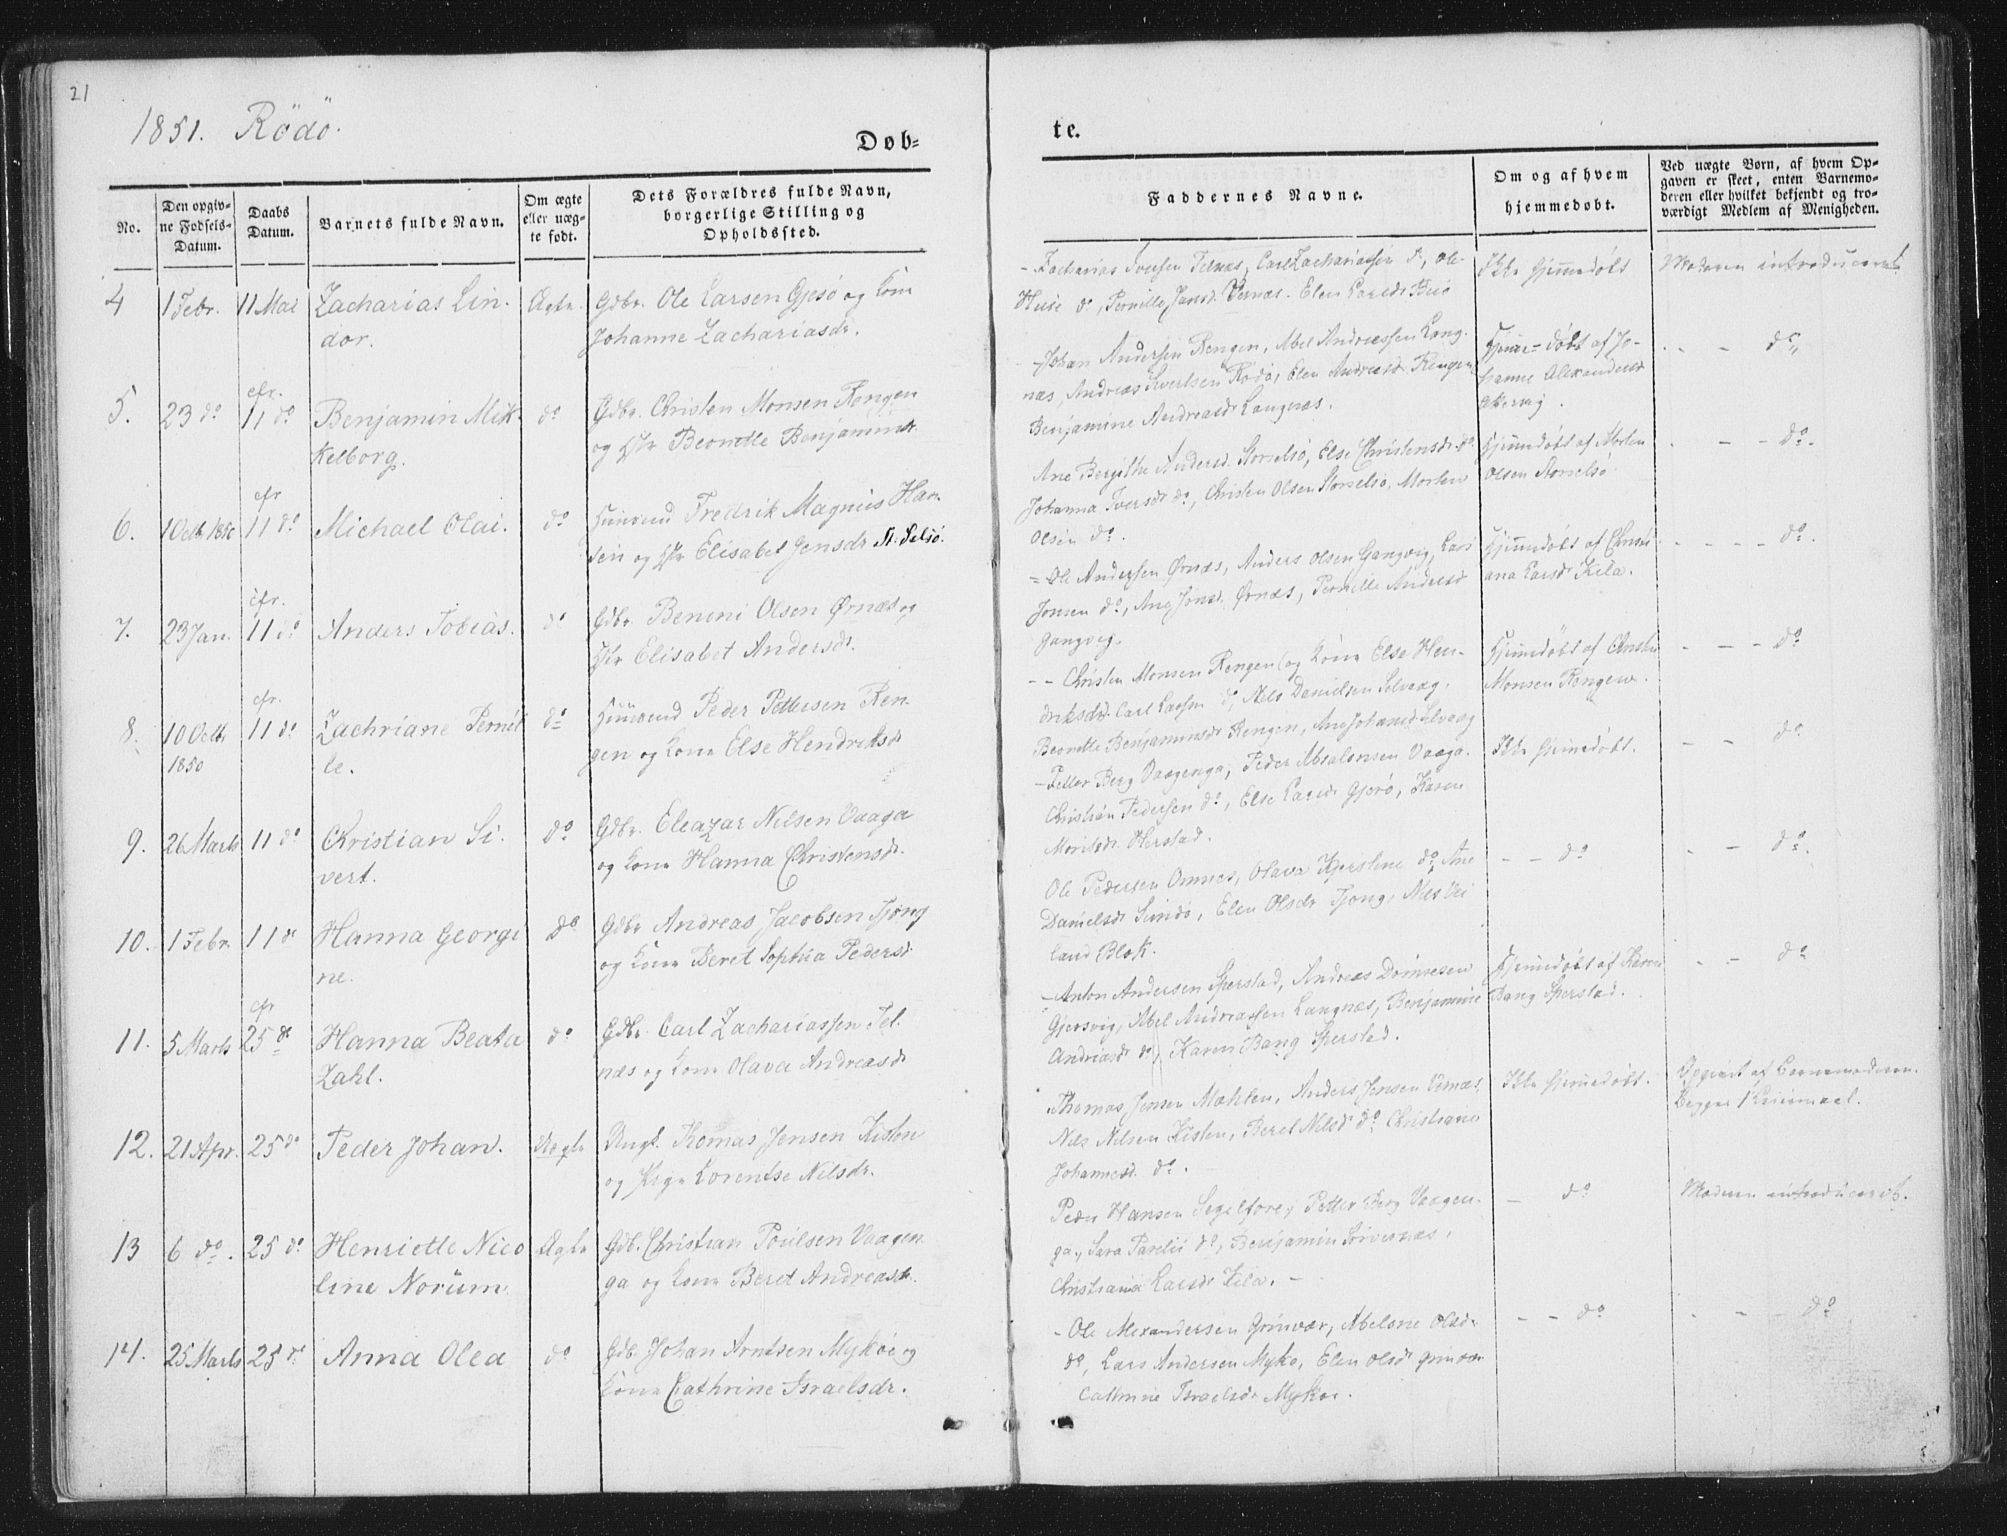 21
1851. Rödö.
Døb=
te.
No.
Den opgiv-
ne Fødsels-
Datum.
Daabs
Datum.
Barnets fulde Navn.
Om ægte
eller uæg-
te født.
Dets Forældres fulde Navn,
borgerlige Stilling og
Opholdssted.
Faddernes Navne.
Om og af hvem
hjemmedøbt.
Ved uægte Børn, af hvem Op-
gaven er skeet, enten Barnemo-
deren eller hvilket bekjendt og tro-
værdigt Medlem af Menigheden.
4 1 Febr. 11 Mai Zacharias Lin-
dor.
Ægte Gdbr. Ole Larsen Gjesø og Kone
Johanne Zachariasdr.
- Zacharias Iversen Telnæs, Carl Zachariassen do, Ole
Huse do, Pernille Jensd. Værnæs. Elen Larsdr
Ikke hjemmedøbt
Moderen introduceret
cfr.
5. 23 do 11 do Benjamin Mik-
kelborg.
do Gdbr. Christen Monsen Rengen
og Hstr Beontle Benjaminsdr.
- Johan Andersen Rengen, Abel Andreassen Lang-
næs, Andreas Sivertsen Rødø, Elen Andreasd. Rengen
Benjamine Andreasdr Langnæs.
Hjemmedøbt af Jo-
hanne Alexandersd
- - do
cfr
6. 1 Octb 1850 11 do Michael Olai.
do Huusmd Fredrik Magnus Han-
sen og Hstr Elisabet Jensdr St. Selsø.
Ane Bergithe Andersd. Storselsø, Else Christensdr. do.
Johanna Iversdr do, Christen Olsen Storselsø, Morten
Olsen do.
Hjemmedøbt af Morten
Olsen Storselsø
- - - do.
cfr.
7. 23 Jan. 11 do Anders Tobias.
do Gdbr. Benoni Olsen Ørnæs og
Hstr Elisabet Andersdr.
= Ole Andersen Ørnæs, Anders Olsen Gangvig, Lars
Jonsen do, Ane Jonsd. Ørnæs, Pernille Andersd
Gangvig.
Hjemmedøbt af Christi-
ana Larsdr Kila.
- - - - do.
cfr.
8. 10 Octb 1850 11 do Zachriane Pernil-
le.
do Huusmd Peder Pettersen Ren-
gen og Kone Else Hendriksdr
- - Christen Monsen Rengen og Kone Else Hen-
driksdr. Carl Larsen do, Nels Danielsen Selvaag.
Beontle Benjaminsdr Rengen, Ane Johansd Selvaag
Hjemmedøbt af Christen
Monsen Rengen.
- - - do
9. 26 Marts 11 do Christian Si-
vert.
do Gdbr. Eleazar Nilsen Vaaga
og Kone Hanna Christensdr.
- Petter Berg Vaagenga, Peder Absalonsen Vaaga.
Christian Pedersen do, Else Larsdr Gjerø, Karen
Ikke hjemmedøbt.
- - do
10. 1 Febr 11 do Hanna Georgi-
ne.
do Gdbr Andreas Jacobsen Tjong
og Kone Beret Sophia Pedersd
Ole Pedersen Omnes, Olava Kjerstine do, Ane
Danielsdr Sundø, Elen Olsdr Tjong, Nils Vei-
land Blok.
- - do
- - do.
cfr
11. 5 Marts 25 do Hanna Beata
Zahl.
do Gdbr. Carl Zachariassen Tel-
næs og Kone Olava Andreasdr
- Anton Andersen Sperstad, Andreas
Gjersvig, Abel Andreassen Langnæs, Benjamine
Andreasdr do, Karen Bang Sperstad.
Hjemmedøbt af Karen
Bang Sperstad.
- - do
12. 21 Apr. 25 do Peder Johan.
Uægte Ungk. Thomas Jensen Kisten
og Pige Lorentse Nilsdr.
Thomas Jensen Mæhlen, Anders Jensen Værnæs
Nils Nilsen Kisten, Beret Nilsdr do Christiane
Johannesd. do.
Ikke hjemmedøbt.
Opgivet af Barnemoderen.
Begges 1 Leiermaal.
13 6 do. 25 do. Henriette Nico-
line Norum
Ægte Gdb. Christian Poulsen Vaagen-
ga og Kone Beret Andreasdr.
Peder Hansen Segelfore, Petter Berg Vaagen-
ga, Sara Parelii do, Benjamin Sørvernæs,
Christiana Larsdr Kila. -
- do
Moderen introduceret.
14. 25 Marts 25 do Anna Olea
do Gdb. Johan Arntsen Mykøe og
Kone Cathrine Israelsdr.
- Ole Alexandersen Grinvær, Abelone Olsdr
do, Lars Andersen Myko, Elen Olsdr Grinvær
Cathrine Israelsdr Mykøe.
- - do
- - - do